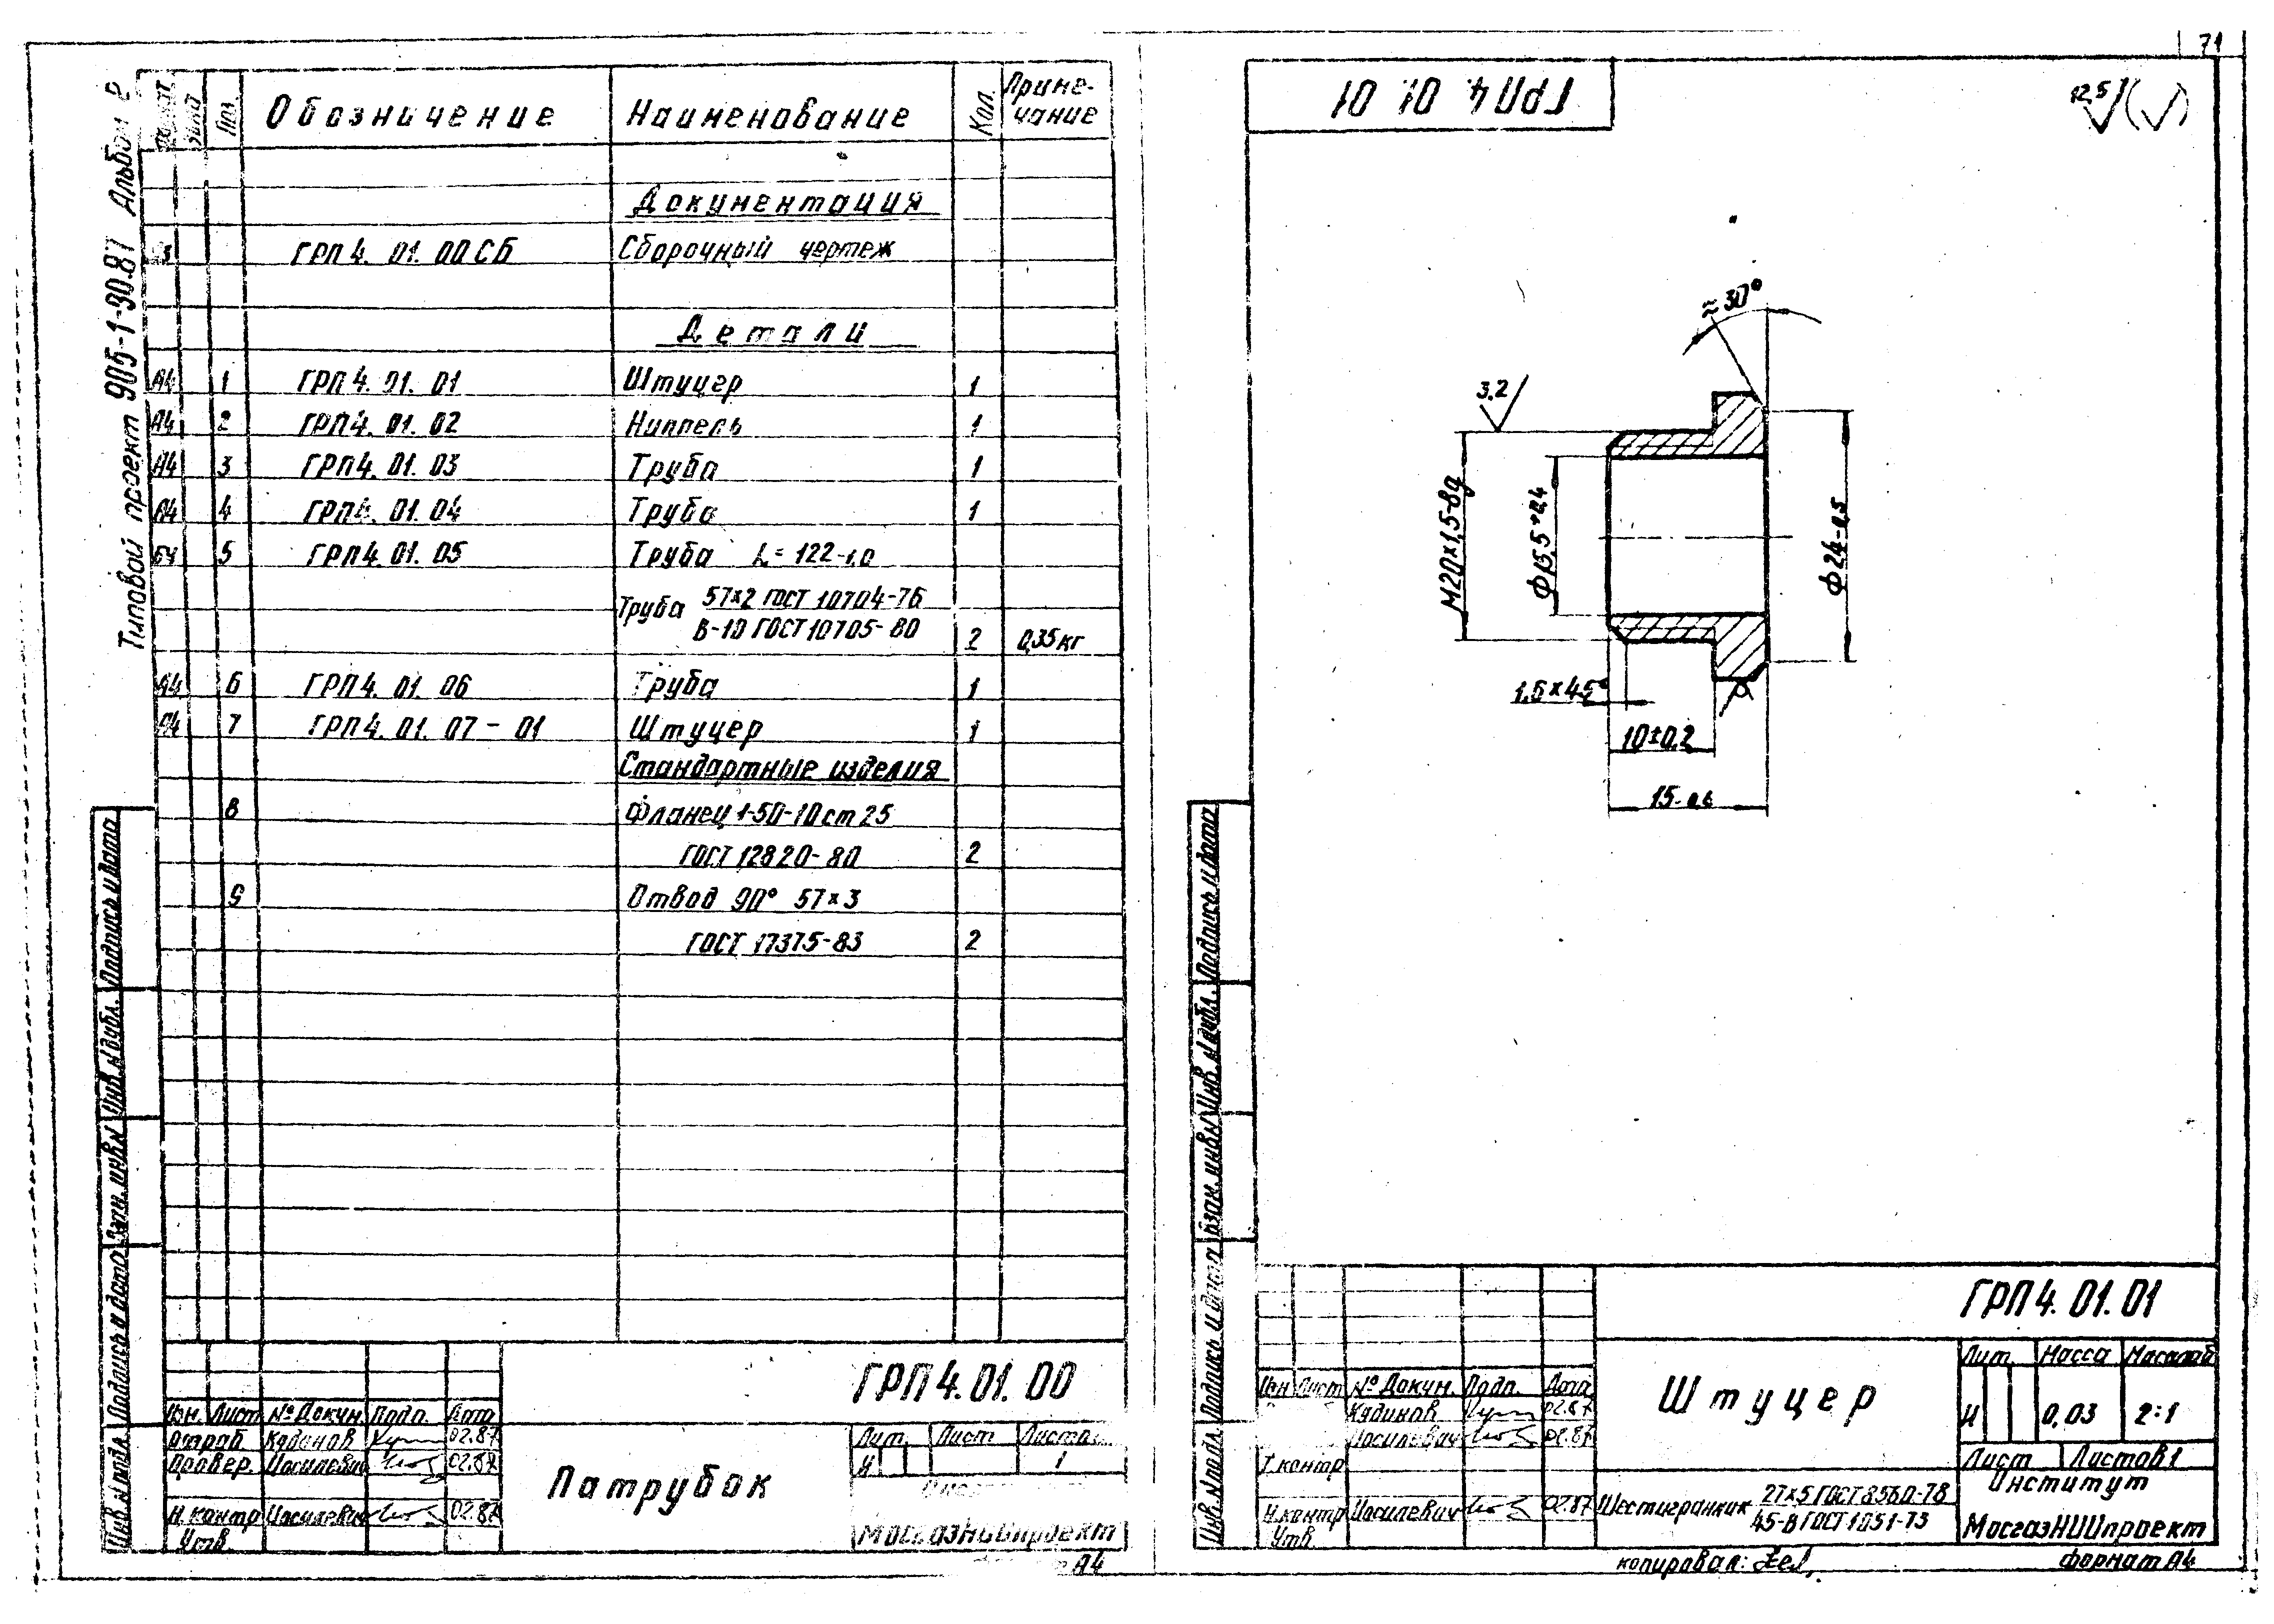 71
Типовой проект 905-1-30.87 Альбом 2
Поз.
Обозначение
Наименование
Кол.
Приме-
чание
Документация
ГРП 4. 01. 00 СБ
Сборочный чертеж
Детали
А4 1 ГРП 4. 01. 01 Штуцер 1
А4 2 ГРП 4. 01. 02 Ниппель 1
А4 3 ГРП 4. 01. 03 Труба 1
А4 4 ГРП 4. 01. 04 Труба 1
БЧ 5 ГРП 4. 01. 05 Труба L = 122-1,0
Труба 57×2 ГОСТ 10704-76
В-10 ГОСТ 10705-80 2 0,35 кг
А4 6 ГРП 4. 01. 06 Труба 1
А4 7 ГРП 4. 01. 07 - 01 Штуцер 1
Стандартные изделия
8 Фланец 1-50-10 ст 25
ГОСТ 12820-80 2
9 Отвод 90° 57×3
ГОСТ 17375-83 2
Инв. N подл. Подпись и дата Взам. инв. N Инв. N дубл. Подпись и дата
ГРП 4. 01. 00
Изм. Лист № Докум. Подп. Дата
Разраб Кудинов 02.87
Провер. Иосилевич 02.87
Н. контр Иосилевич 02.87
Утв
Патрубок
Лит. Лист Листов
И 1
МосгазНИИпроект
А4
ГРП 4. 01. 01
12,5 (√)
≈30°
3,2
М20×1,5-8g
Ф15,5+0,4
Ф24-0,5
1,5×45°
10±0,2
15-0,6
Инв. N подл. Подпись и дата Взам. инв N Инв. N дубл. Подпись и дата
ГРП 4. 01. 01
Изм Лист № Докум. Подп. Дата
Кудинов 02.87
Иосилевич 02.87
Т. контр
Н. контр Иосилевич 02.87
Утв
Штуцер
Лит. Масса Масштаб
И 0,03 2:1
Лист Листов 1
Шестигранник 27×5 ГОСТ 8560-78
45-В ГОСТ 1051-73
Институт
МосгазНИИпроект
копировал:
формат А4